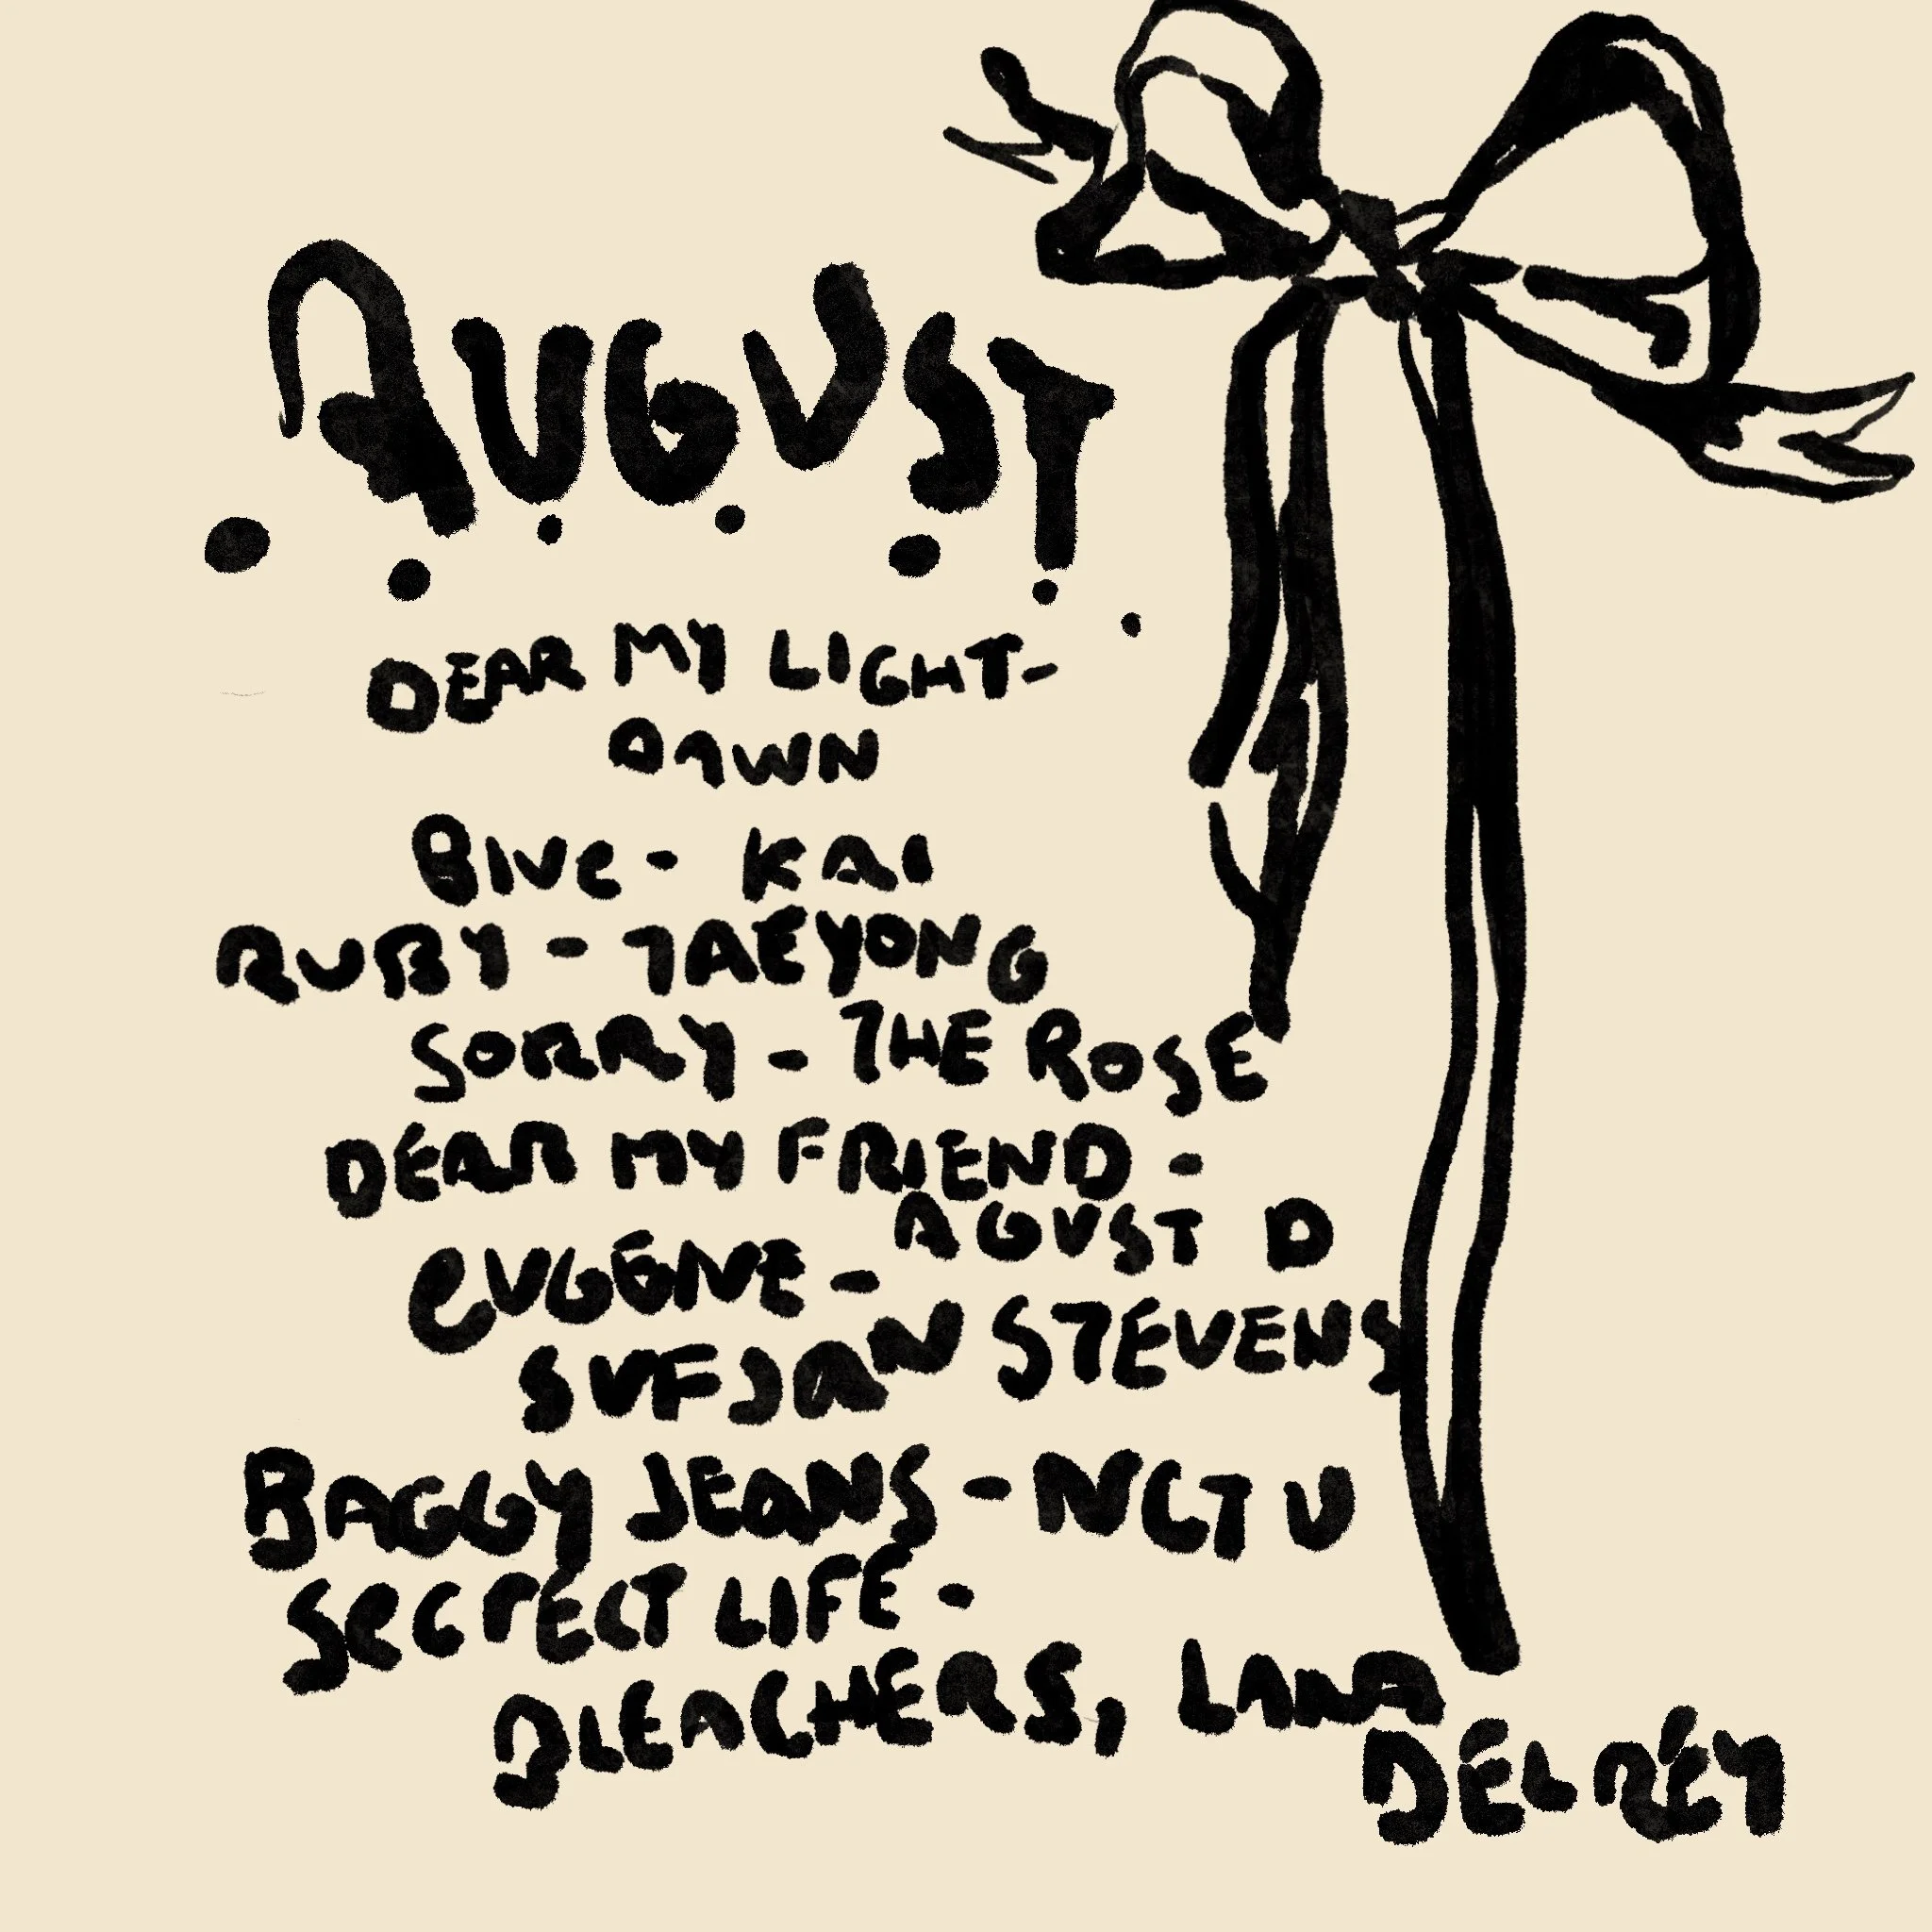 AUGUST
DEAR MY LIGHT-
DAWN
BlUe - KAI
RUBY - TAEYONG
SORRY - THE ROSE
DEAR MY FRIEND -
AGUST D
eUGENE -
SUFJAN STEVENS
BAGGY JEANS - NCT U
SeCrECT LIFE -
BLEACHERS, LANA
DEL REY